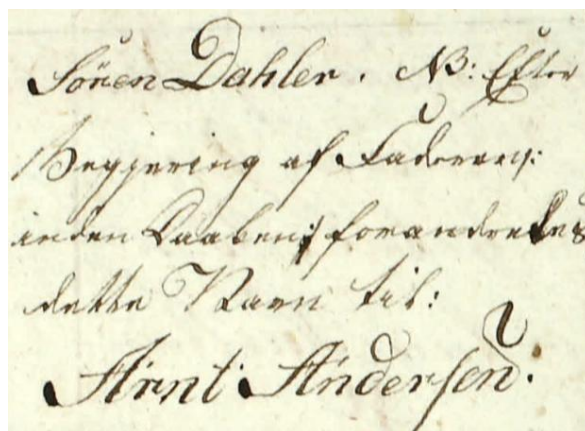 Sören Dahler. NB: Efter
Begjering af Faderen /:
inden Daaben :/ forandredes
dette Navn til:
Arnt Andersen.